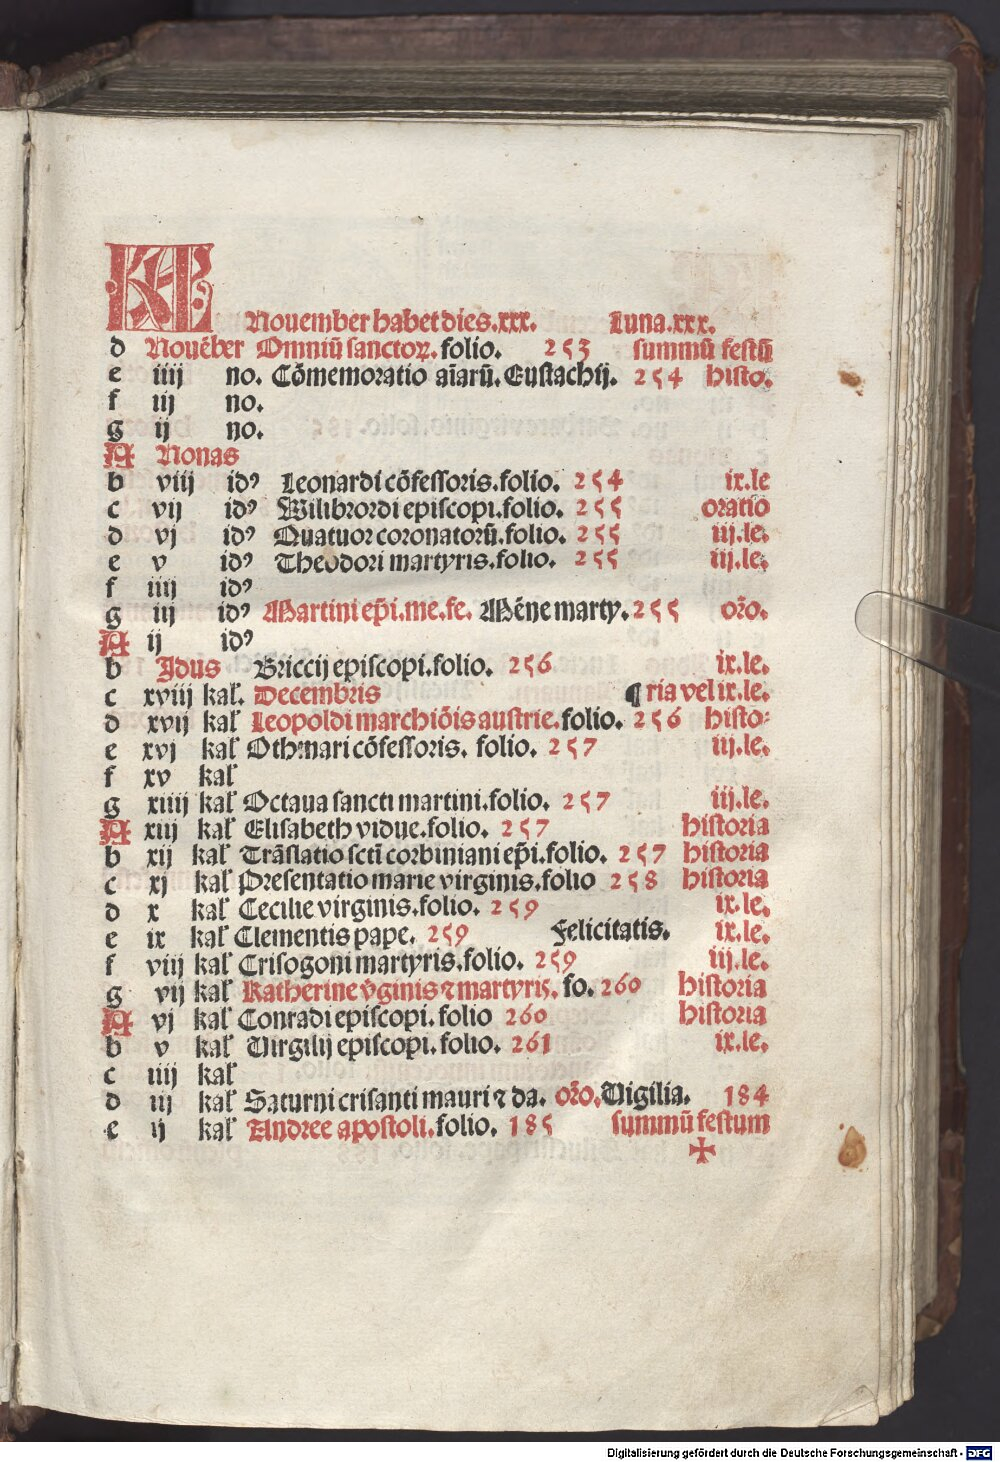 KL November habet dies.xxx. Luna.xxx.
d Nouẽber Omniũ sanctoꝝ. folio. 253 summũ festũ
e iiij no. Cõmemoratio aĩarũ. Eustachij. 254 histo.
f iij no.
g ij no.
A Nonas
b viij idꝰ Leonardi cõfessoris. folio. 254 ix.le
c vij idꝰ Wilibrordi episcopi. folio. 255 oratio
d vj idꝰ Quatuor coronatorũ. folio. 255 iij.le.
e v idꝰ Theodori martyris. folio. 255 iij.le.
f iiij idꝰ
g iij idꝰ Martini ep̃i. me. fe. Mẽne marty. 255 or̃o.
A ij idꝰ
b Idus Briccij episcopi. folio. 256 ix.le.
c xviij kal'. Decembris ¶ ria vel ix.le.
d xvij kal' Leopoldi marchiõis austrie. folio. 256 histo⸗
e xvj kal' Othmari cõfessoris. folio. 257 iij.le.
f xv kal'
g xiiij kal' Octaua sancti martini. folio. 257 iij.le.
A xiij kal' Elisabeth vidue. folio. 257 historia
b xij kal' Trãslatio sctĩ corbiniani ep̃i. folio. 257 historia
c xj kal' Presentatio marie virginis. folio 258 historia
d x kal' Cecilie virginis. folio. 259 ix.le.
e ix kal' Clementis pape. 259 Felicitatis. ix.le.
f viij kal' Crisogoni martyris. folio. 259 iij.le.
g vij kal' Katherine v̓ginis ⁊ martyris. fo. 260 historia
A vj kal' Conradi episcopi. folio 260 historia
b v kal' Virgilij episcopi. folio. 261 ix.le.
c iiij kal'
d iij kal' Saturni crisanti mauri ⁊ da. or̃o. Vigilia. 184
e ij kal' Andree apostoli. folio. 185 summũ festum
✠
Digitalisierung gefördert durch die Deutsche Forschungsgemeinschaft - DFG